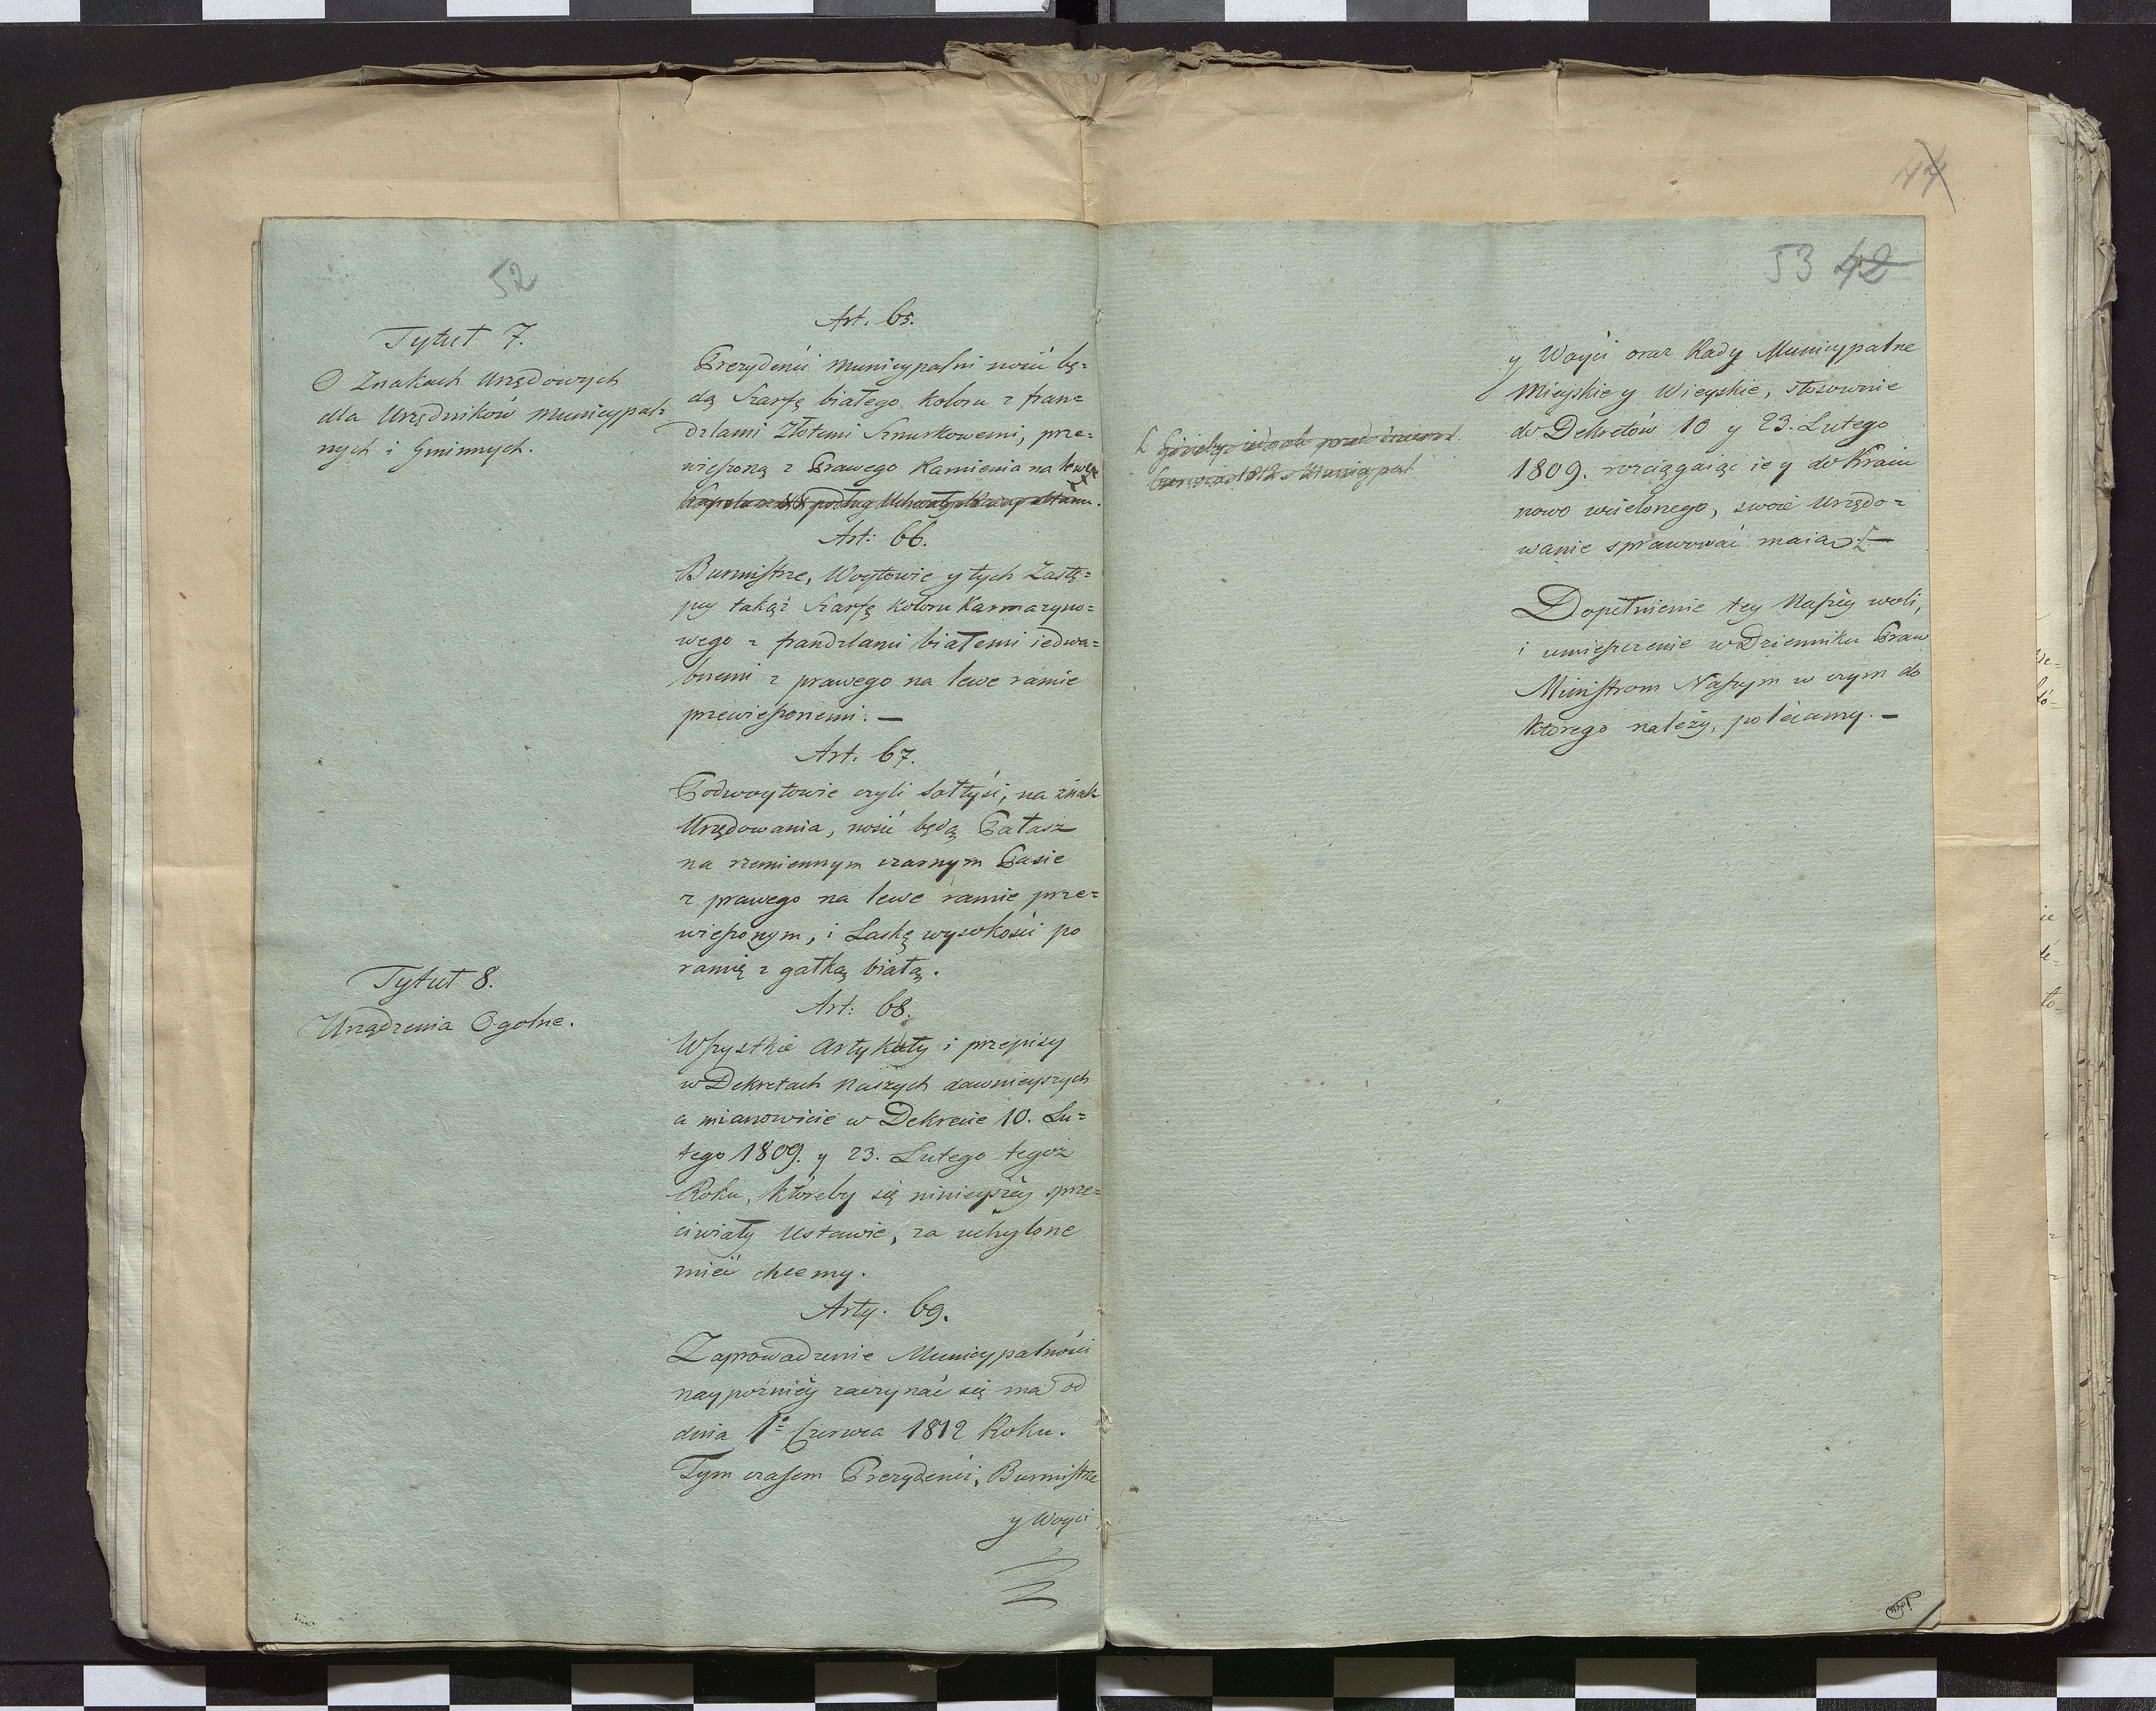 52
Tytuł 7.
O Znakach Urzędowych
dla Urzędników Municypal=
nych i Gminnych.
Tytuł 8.
Urządzenia Ogolne.
Art. 65.
Prezydenci Municypalni nosić bę=
dą Szarfę białego koloru z fran=
dzlami Złotemi Sznurkowemi, prze=
wieszoną z Prawego Ramienia na lewe
podług Uchwały
Art: 66.
Burmistrze, Woytowie y tych Zastę=
pcy takąż Szarfę koloru Karmazyno=
wego z frandzlami białemi iedwa=
bnemi z prawego na lewe ramie
przewieszonemi. —
Art. 67.
Podwoytowie czyli Sołtyśi, na znak
Urzędowania, nosić będą Pałasz
na rzemiennym czarnym Pasie
z prawego na lewe ramie prze=
wieszonym, i Laskę wysokości po
ramię z gałką białą.
Art: 68.
Wszystkie Artykuły i przepisy
w Dekretach Naszych dawnieyszych
a mianowicie w Dekrecie 10. Lu=
tego 1809. y 23. Lutego tegoż
Roku, któreby się ninieyszéy sprze=
ciwiały Ustawie, za uchylone
mieć chcemy.
Arty. 69.
Zaprowadzenie Municypalności
naypóźniéy zaczynać się ma od
dnia 1º Czerwca 1812 Roku.
Tym czasem Prezydenci, Burmistrze
y Woyci
44
53 42
przed
1812 Municypal
y Woyći oraz Rady Municypalne
Mieyskie y Wieyskie, stosownie
do Dekretów 10 y 23. Lutego
1809. rozciągaiąc ie y do Kraiu
nowo wcielonego, swoie Urzędo=
wanie sprawować maią. —
Dopełnienie tey Naszéy woli,
i umieszczenie w Dzienniku Praw
Ministrom Naszym w czym do
którego należy, polécamy. —